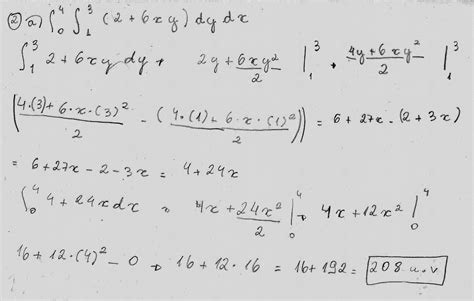 ② a) ∫₀⁴ ∫₁³ (2 + 6xy) dy dx
∫₁³ 2 + 6xy dy → 2y + 6xy²/2 |₁³ → (4y + 6xy²)/2 |₁³
((4·(3) + 6·x·(3)²)/2 - ((4·(1) + 6·x·(1)²)/2)) = 6 + 27x - (2 + 3x)
= 6 + 27x - 2 - 3x = 4 + 24x
∫₀⁴ 4 + 24x dx → 4x + 24x²/2 |₀⁴ → 4x + 12x² |₀⁴
16 + 12·(4)² - 0 → 16 + 12·16 = 16 + 192 = 208 u.v